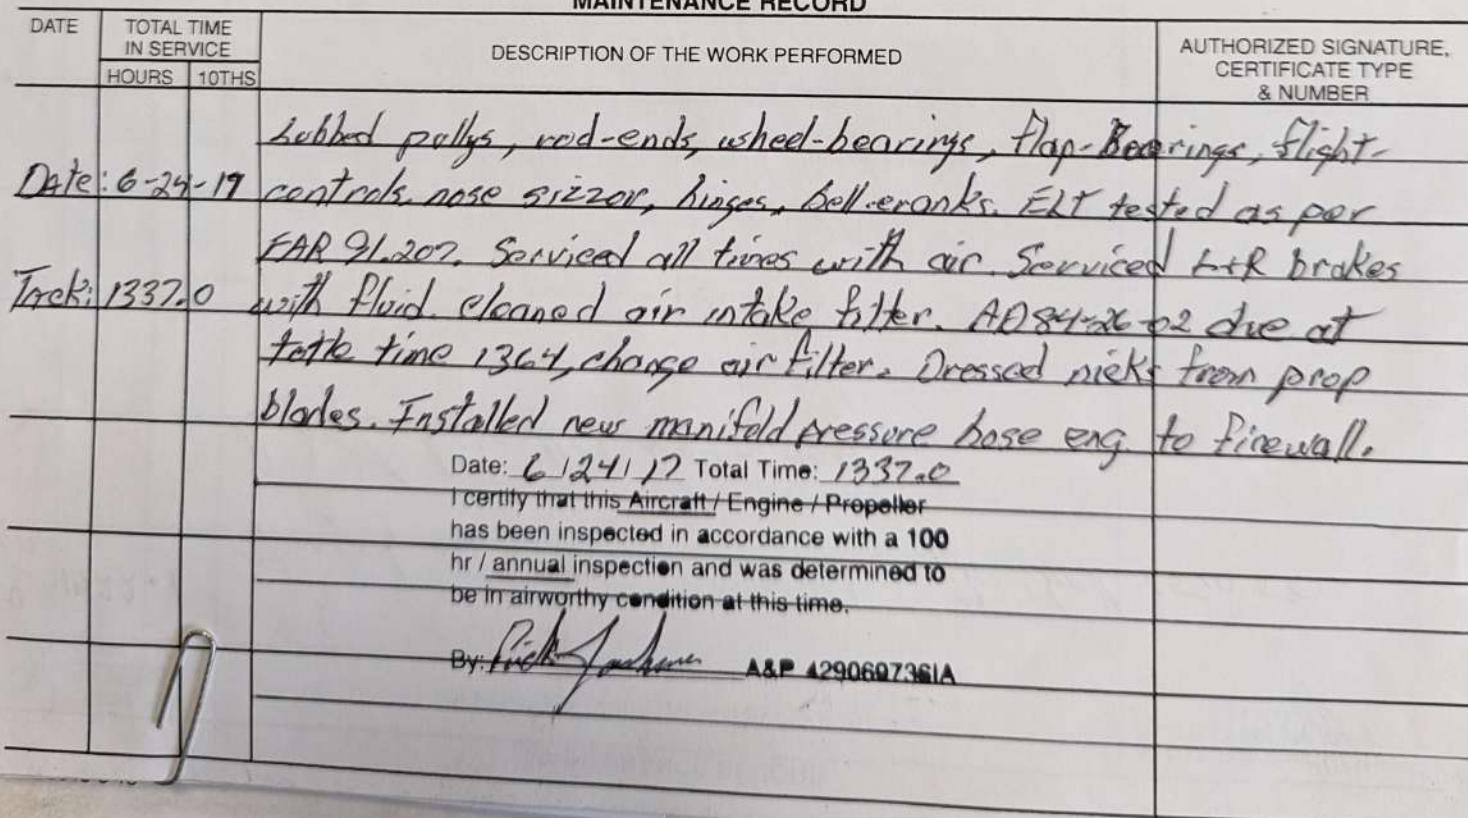 MAINTENANCE RECORD
DATE
TOTAL TIME
IN SERVICE
HOURS
10THS
DESCRIPTION OF THE WORK PERFORMED
AUTHORIZED SIGNATURE,
CERTIFICATE TYPE
& NUMBER
Lubbed pullys, rod-ends, wheel-bearings, flap-Bearings, flight-
Date: 6-24-17 controls nose sizzor, hinges, bell-cranks. ELT tested as per
FAR 91.207. Serviced all tires with air. Serviced L+R brakes
Tack: 1337.0 with fluid. cleaned air intake filter. AD 84-26-02 due at
totle time 1364, change air filter. Dressed nicks from prop
blades. Installed new manifold pressure hose eng. to firewall.
Date: 6/24/17 Total Time: 1337.0
I certify that this Aircraft / Engine / Propeller
has been inspected in accordance with a 100
hr / annual inspection and was determined to
be in airworthy condition at this time.
By: A&P 429069736IA